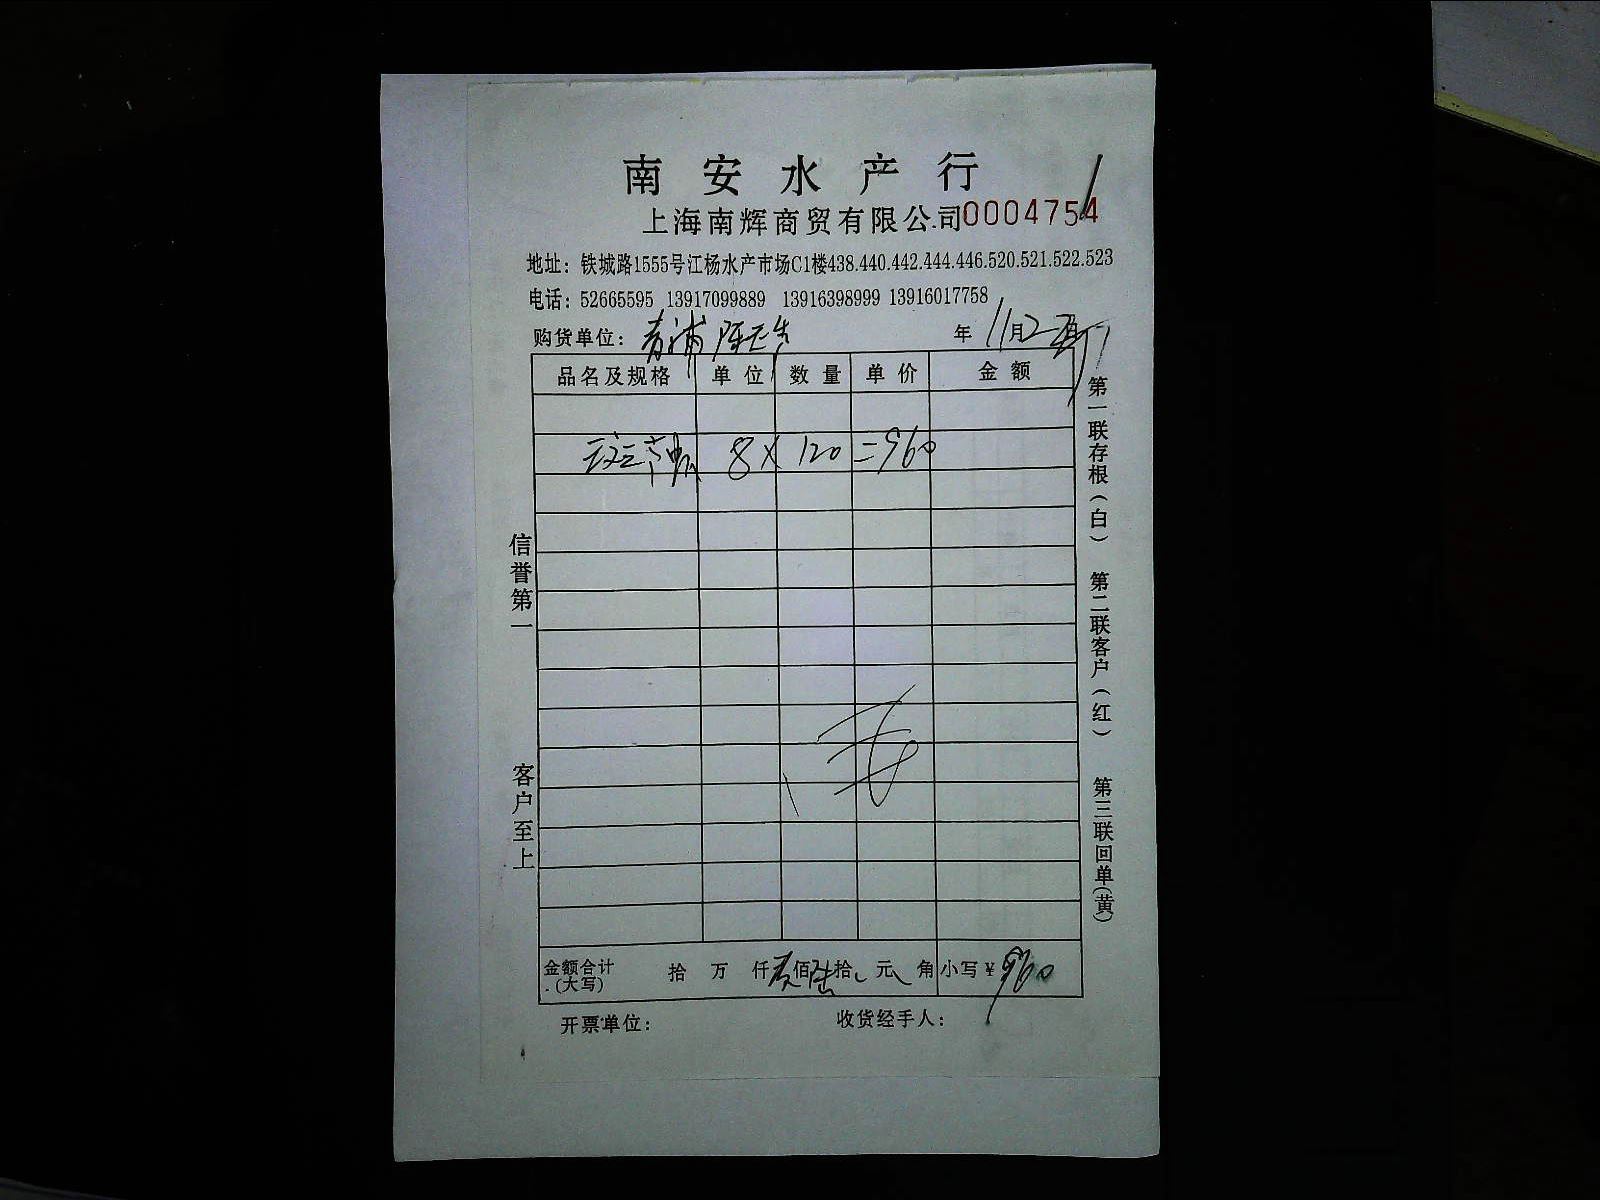 南安水产行
上海南辉商贸有限公司 0004754
地址：铁城路1555号江杨水产市场C1楼438.440.442.444.446.520.521.522.523
电话：52665595 13917099889 13916398999 13916017758
购货单位：青浦 年 11月2
品名及规格 单位 数量 单价 金额
8 × 120 = 960
金额合计（大写） 拾 万 仟 佰 陆 拾 元 角 小写￥960
开票单位： 收货经手人：
信誉第一
客户至上
第一联存根（白） 第二联客户（红） 第三联回单（黄）